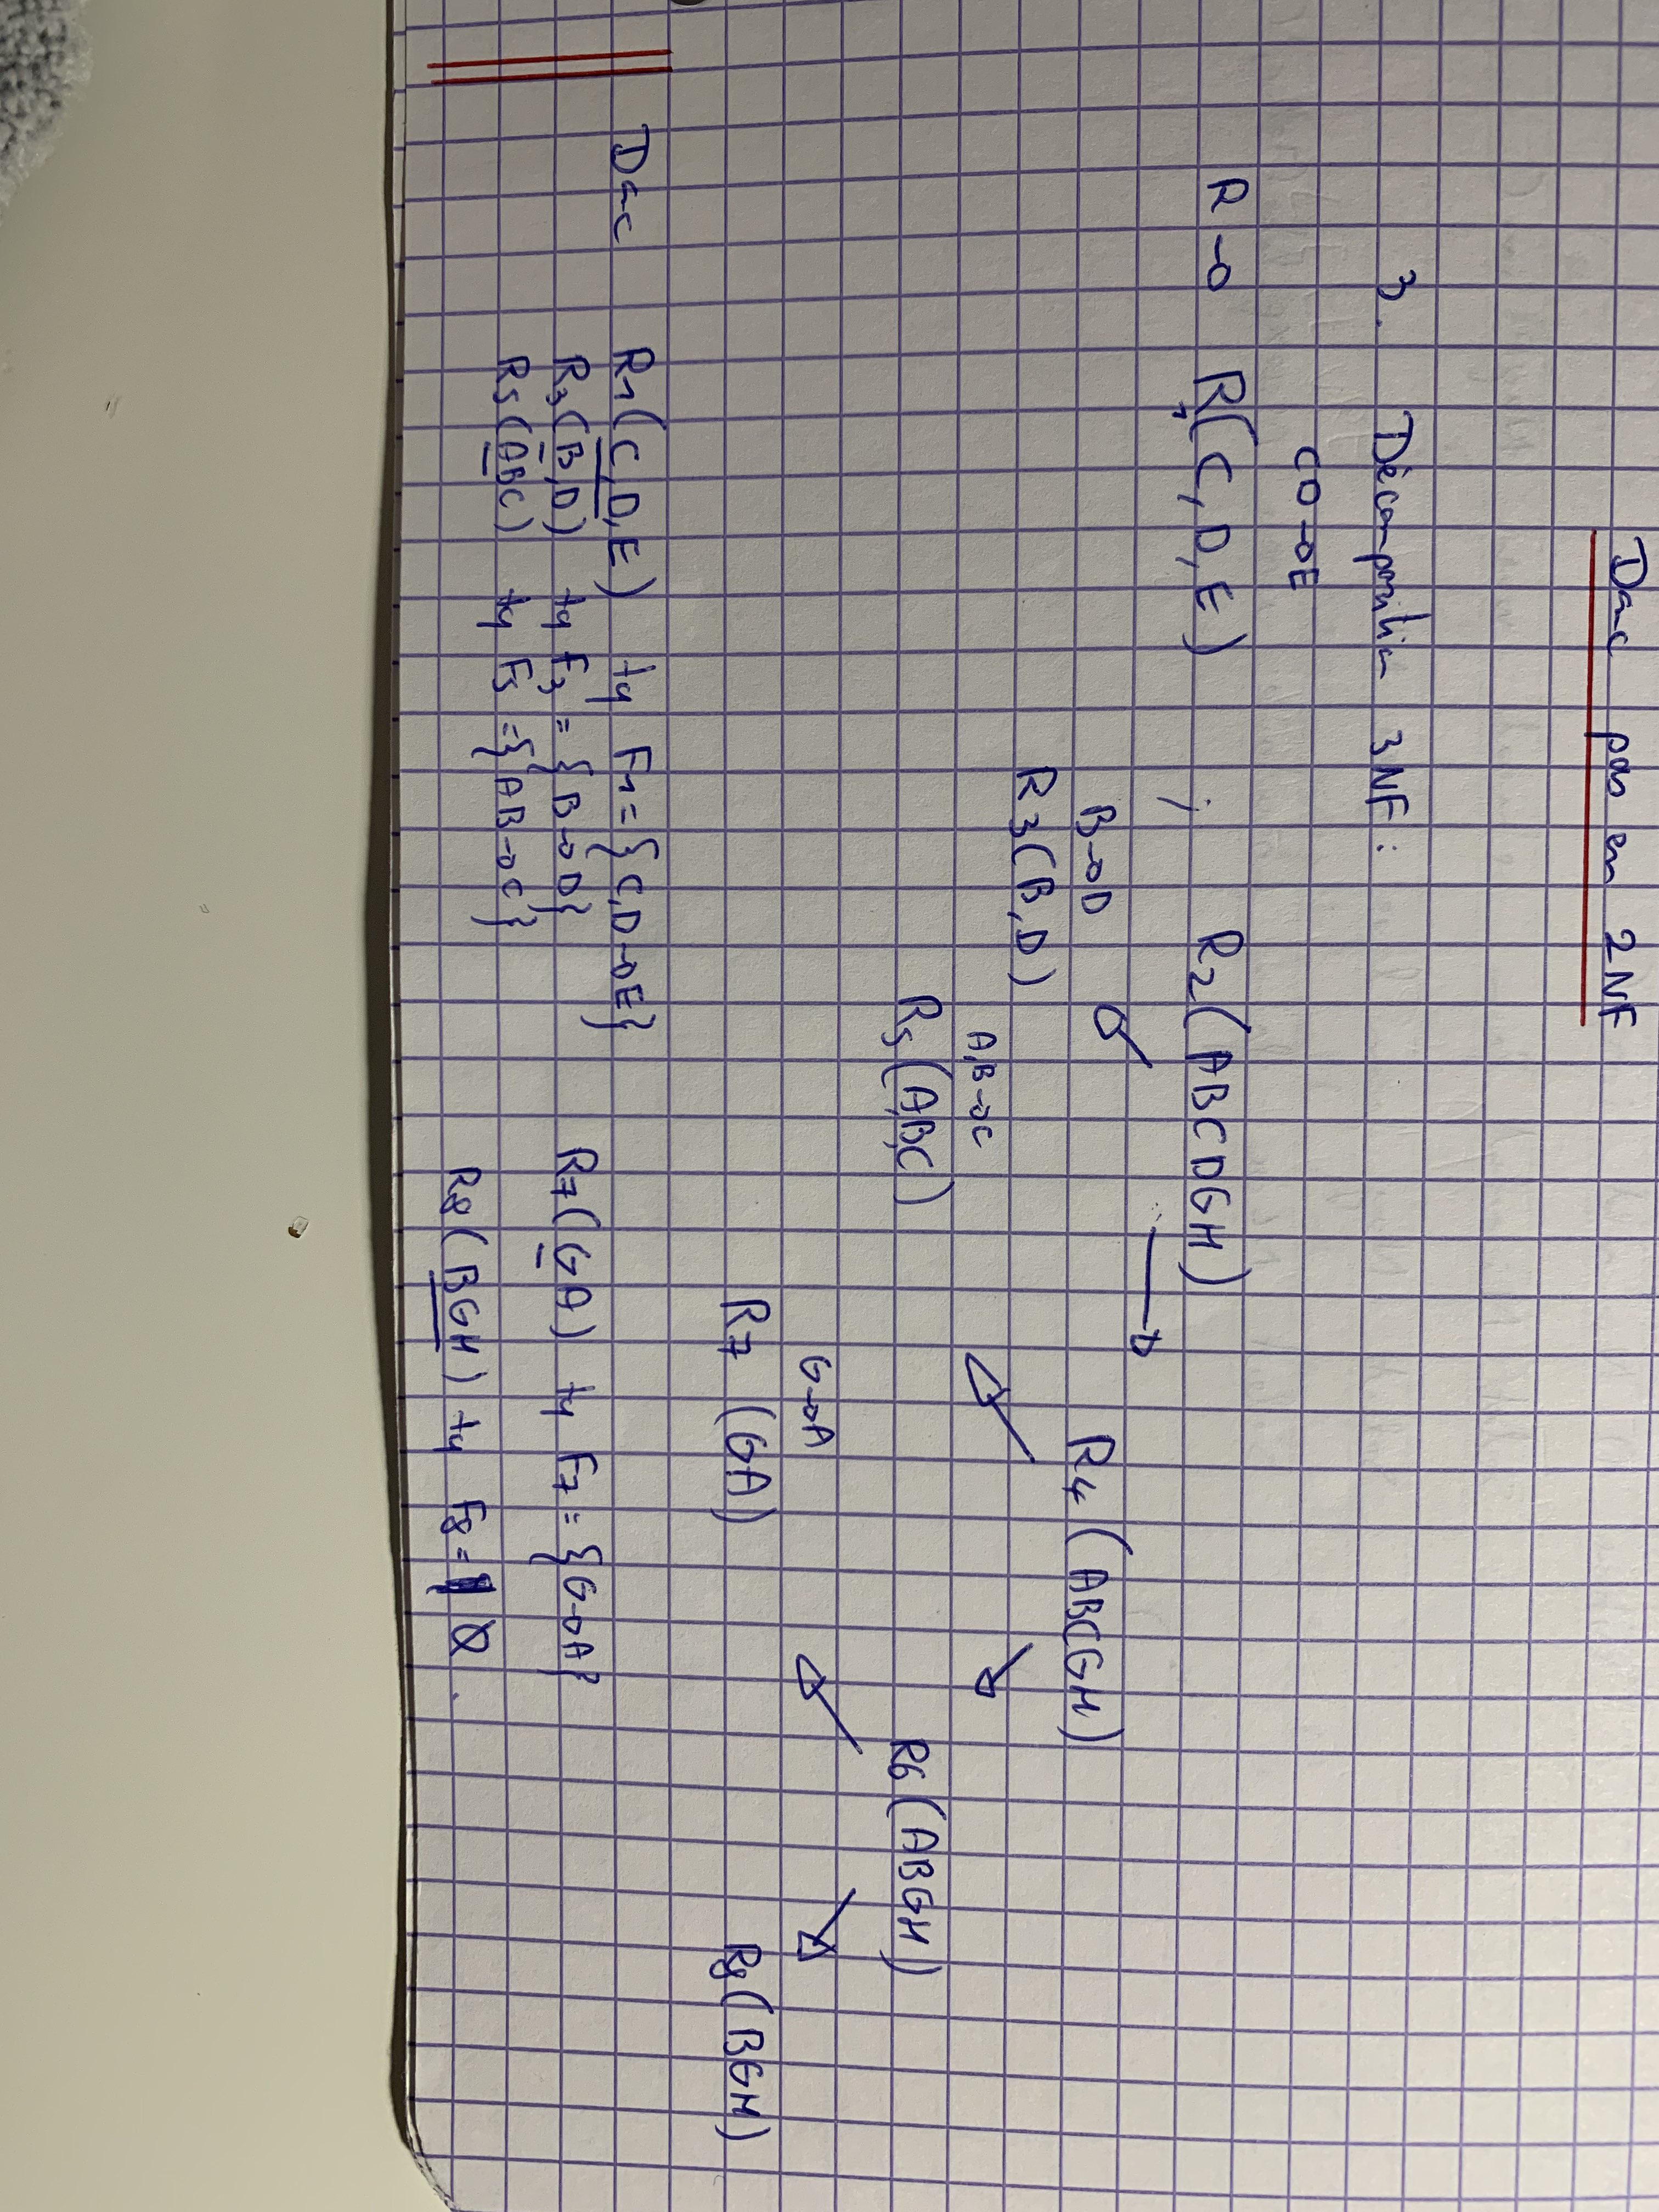 Donc pas en 2NF
3. Décomposition 3NF :
CD→E
R → R1(C,D,E) ; R2(ABCDGH)
B→D
R3(B,D)
R4(ABCGH)
A,B→C
R5(A,B,C)
R6(ABGH)
G→A
R7(GA)
R8(BGH)
Donc R1(C,D,E) tq F1={C,D→E}
R3(B,D) tq F3={B→D}
R5(ABC) tq F5={AB→C}
R7(GA) tq F7={G→A}
R8(BGH) tq F8=Ø.